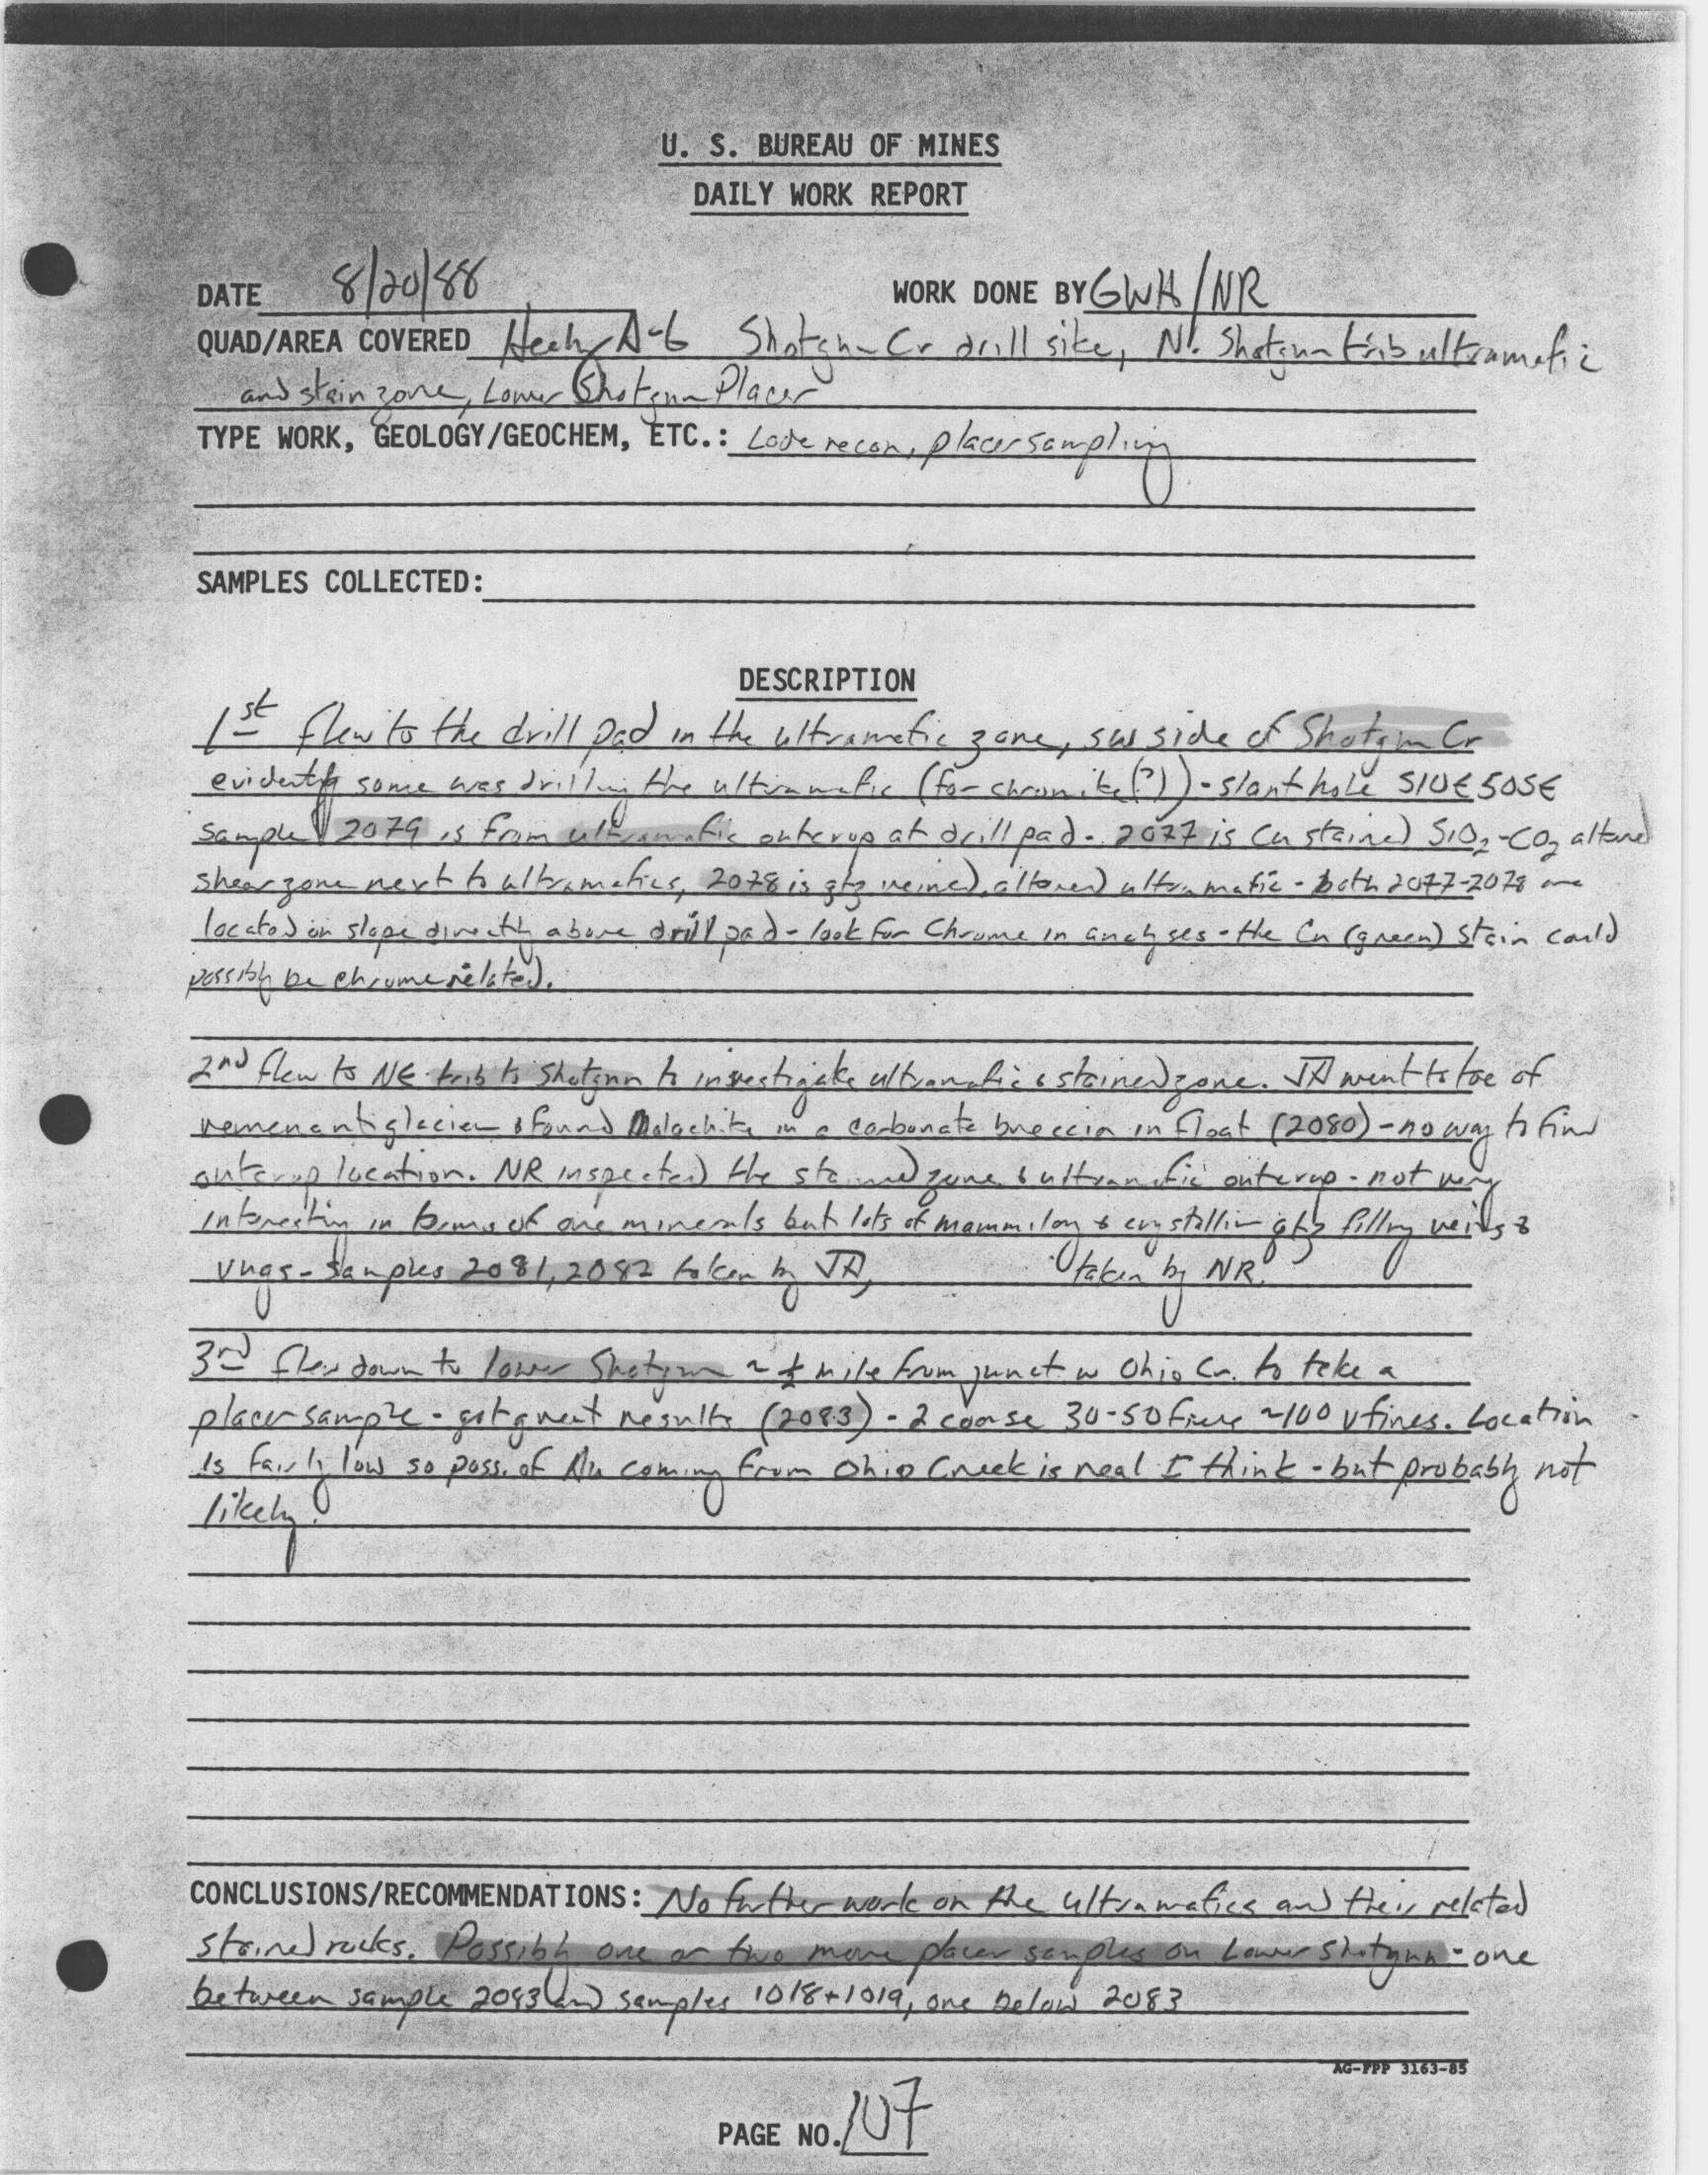 U. S. BUREAU OF MINES
DAILY WORK REPORT
DATE 8/20/88 WORK DONE BY GWH/NR
QUAD/AREA COVERED Healy A-6 Shotgun Cr drill site, N. Shotgun trib ultramafic
and stain zone, Lower Shotgun Placer
TYPE WORK, GEOLOGY/GEOCHEM, ETC.: Lode recon, placer sampling
SAMPLES COLLECTED:
DESCRIPTION
1st flew to the drill pad in the ultramafic zone, sw side of Shotgun Cr
evidently some was drilling the ultramafic (for chromite(?)) - slant hole S10E 50SE
Sample 2079 is from ultramafic outcrop at drill pad - 2077 is Cu stained SiO2-CO2 altered
shear zone next to ultramafics, 2078 is qtz veined, altered ultramafic - both 2077-2078 are
located on slope directly above drill pad - look for Chrome in analyses - the Cu (green) stain could
possibly be chrome related.
2nd flew to NE trib to Shotgun to investigate ultramafic & stained zone. JA went to toe of
remenant glacier & found Malachite in a carbonate breccia in float (2080) - no way to find
outcrop location. NR inspected the stained zone & ultramafic outcrop - not very
interesting in terms of ore minerals but lots of mammilary & crystallin qtz filling veins &
vugs - samples 2081, 2082 taken by JA, taken by NR.
3rd flew down to lower Shotgun ~ ½ mile from junct w Ohio Cr. to take a
placer sample - got great results (2083) - 2 coarse 30-50 fine ~100 v fines. Location
is fairly low so poss. of Au coming from Ohio Creek is real I think - but probably not
likely.
CONCLUSIONS/RECOMMENDATIONS: No further work on the ultramafics and their related
stained rocks. Possibly one or two more placer samples on Lower Shotgun - one
between sample 2083 and samples 1018+1019, one below 2083
AG-FPP 3163-85
PAGE NO. 107